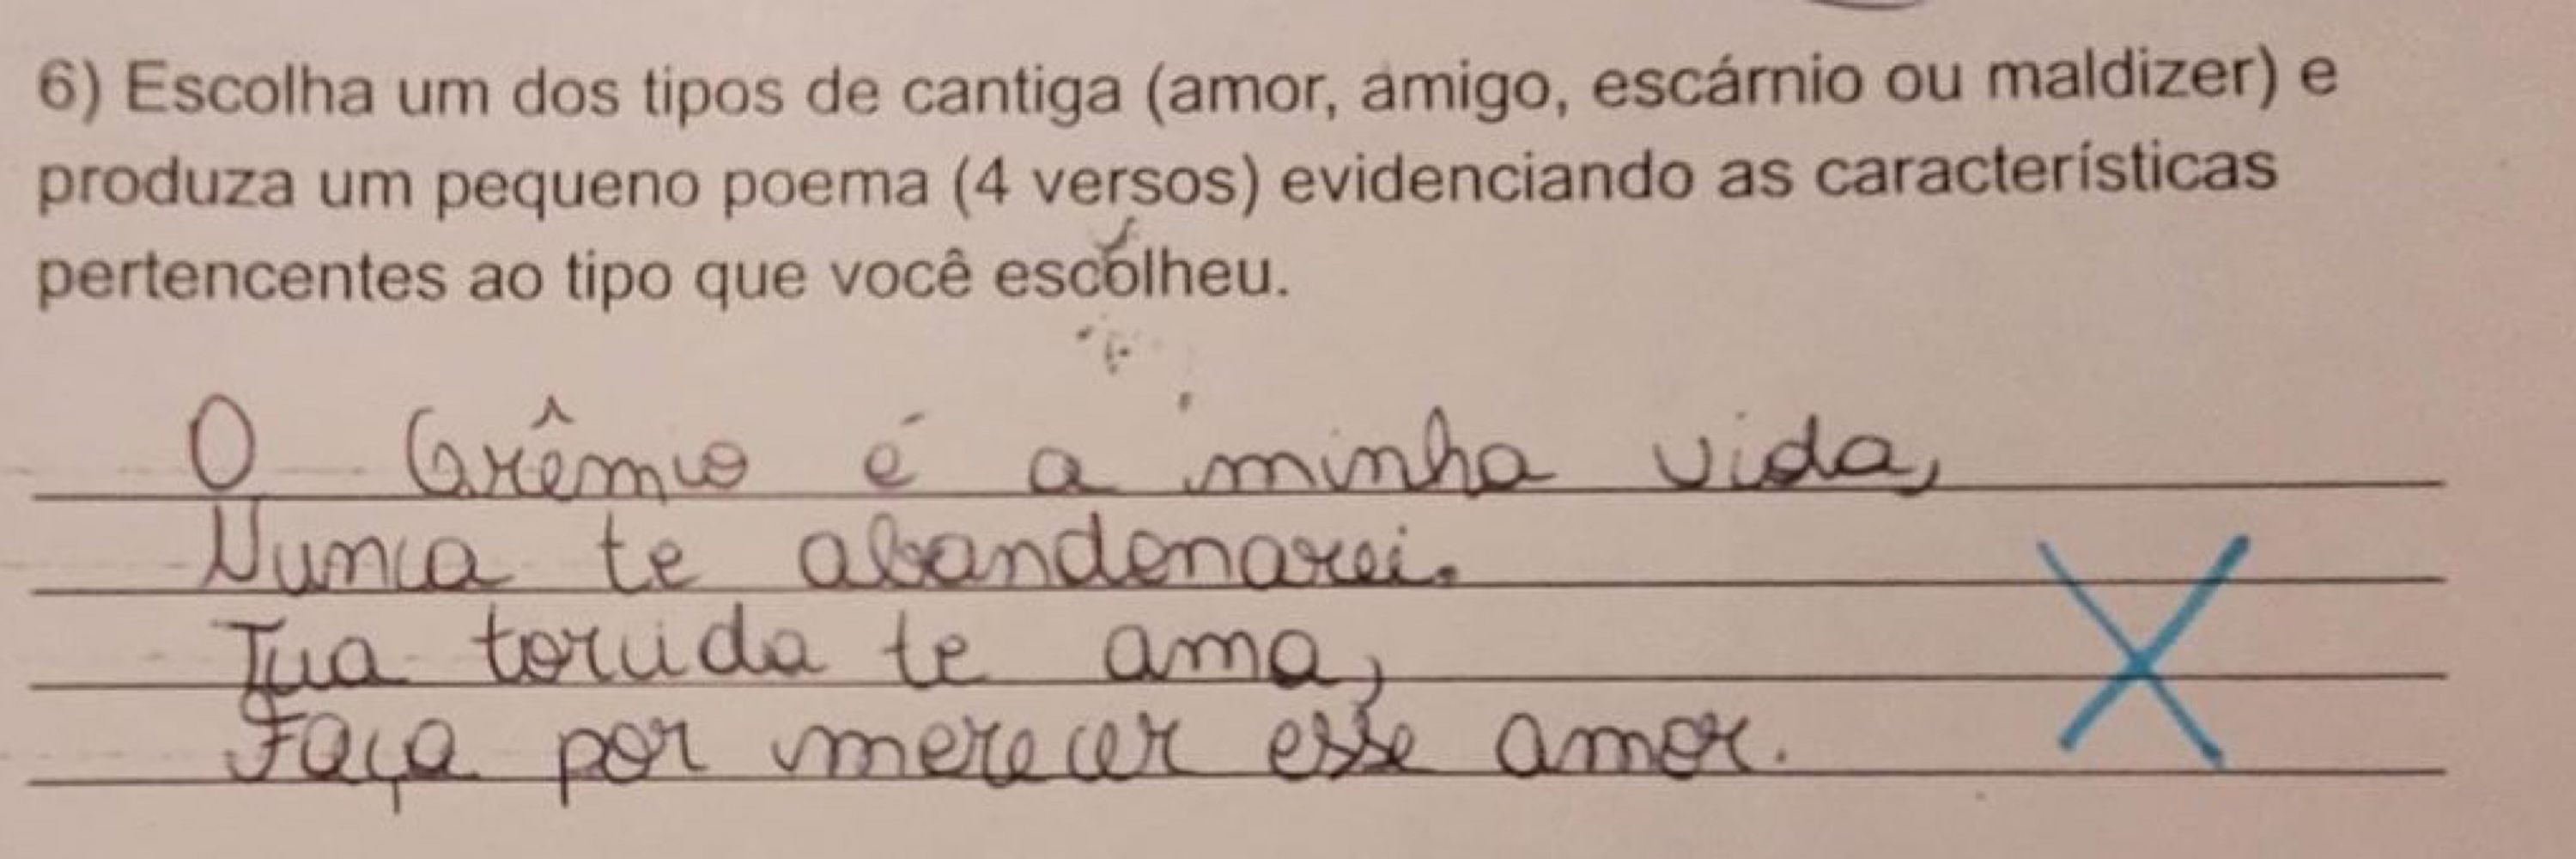 6) Escolha um dos tipos de cantiga (amor, amigo, escárnio ou maldizer) e
produza um pequeno poema (4 versos) evidenciando as características
pertencentes ao tipo que você escolheu.
O Grêmio é a minha vida,
Nunca te abandonarei.
Tua torcida te ama,
Faça por merecer esse amor.